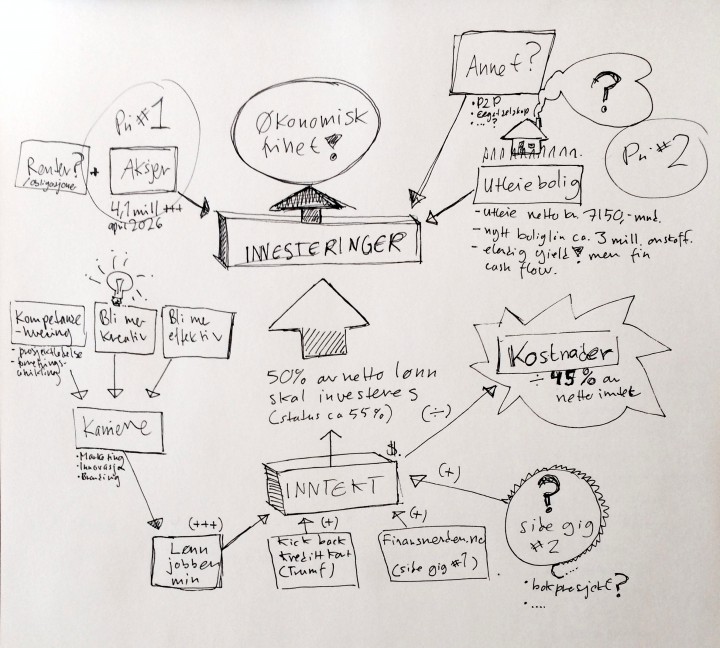 Annet?
• P2P
• eget selskap
• ... ?
?
Pri #1
Økonomisk
frihet!
Pri #2
Renter?
/obligasjoner
+
Aksjer
4,1 mill +++
april 2026
Utleiebolig
- utleie netto ca. 7150,- mnd.
- nytt boliglån ca. 3 mill.
- elendig yield! men fin
cash flow.
INVESTERINGER
Kompetanse
- heving
- prosjektledelse
Bli mer
kreativ
Bli mer
effektiv
50% av netto lønn
skal investeres
(status ca 55%)
Kostnader
÷ 45% av
netto inntekt
(÷)
Karriere
• Marketing
• Innovasjon
• Branding
$.
INNTEKT
(+)
?
side gig
#2
• bokprosjekt?
• ....
(+++)
Lønn
jobben
min
(+)
Kick back
kredittkort
(Trumf)
(+)
Finansnerden.no
(side gig #1)